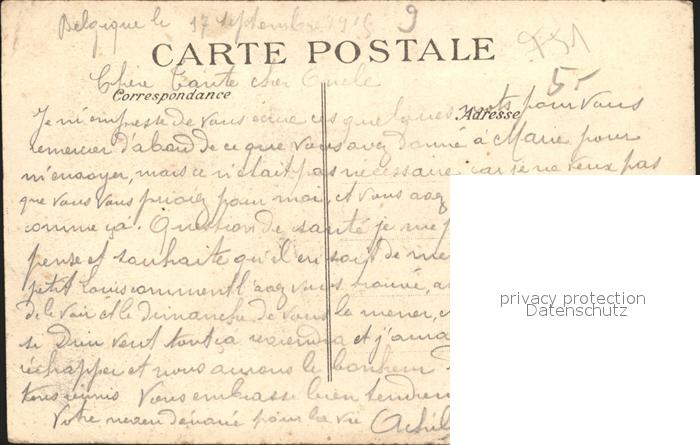 Belgique le 17 septembre 1915 9
CARTE POSTALE
Chère Tante cher Oncle 5
Correspondance
Adresse
Je m'empresse de vous écrire ces quelques mots pour vous
remercier d'abord de ce que vous avez donné à Marie pour
m'envoyer, mais ce n'était pas nécessaire car je ne veux pas
que vous vous priviez pour moi, et vous avez
comme ça. Question de santé je me p
pense et souhaite qu'il en soit de me
petit Louis comment l'avez vous trouvé, a
de le voir et le dimanche de vous le mener,
si Dieu veut tout ça reviendra et j'aurai
échapper et nous aurons le bonheur
tous réunis Vous embrasse bien tendrem
Votre neveu dévoué pour la vie Achil
privacy protection
Datenschutz